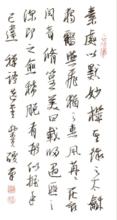 素處以默妙機其微飲之太和
獨鶴與飛猶之惠風荏苒在衣
閱音修篁美曰載歸遇之匪
深即之愈希脫有形似握手
已違